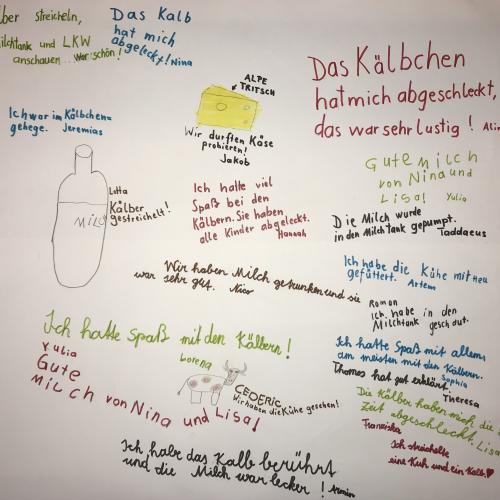 ber streicheln,
ilchtank und LKW
anschauen...war schön!
Das Kalb
hat mich
abgeleckt! Nina
Ich war im Kälbchen=
gehege. Jeremias
ALPE
TRITSCH
Wir durften Käse
probieren!
Jakob
Das Kälbchen
hat mich abgeschleckt,
das war sehr lustig! Ali
MILCH
Lotta
Kälber
gestreichelt!
Ich hatte viel
Spaß bei den
Kälbern. Sie haben
alle Kinder abgeleckt.
Hannah
Gute Milch
von Nina und
Lisa! Yulia
Die Milch wurde
in den Milchtank gepumpt.
Taddaeus
Wir haben Milch getrunken und sie
war sehr gut. Nico
Ich habe die Kühe mit Heu
gefüttert. Artem
Roman
Ich habe in den
Milchtank geschaut.
Ich hatte Spaß mit den Kälbern!
Lorena
Yulia
Gute
Milch von Nina und Lisa!
CEDERIC
Wir haben die Kühe gesehen!
Ich hatte Spaß mit allem
am meisten mit den Kälbern.
Sophia
Thomas hat gut erklärt.
Theresa
Die Kälber haben mich die
Zeit abgeschleckt. Lisa
Franziska
Ich streichelte
eine Kuh und ein Kalb
Ich habe das Kalb berührt
und die Milch war lecker! Armin